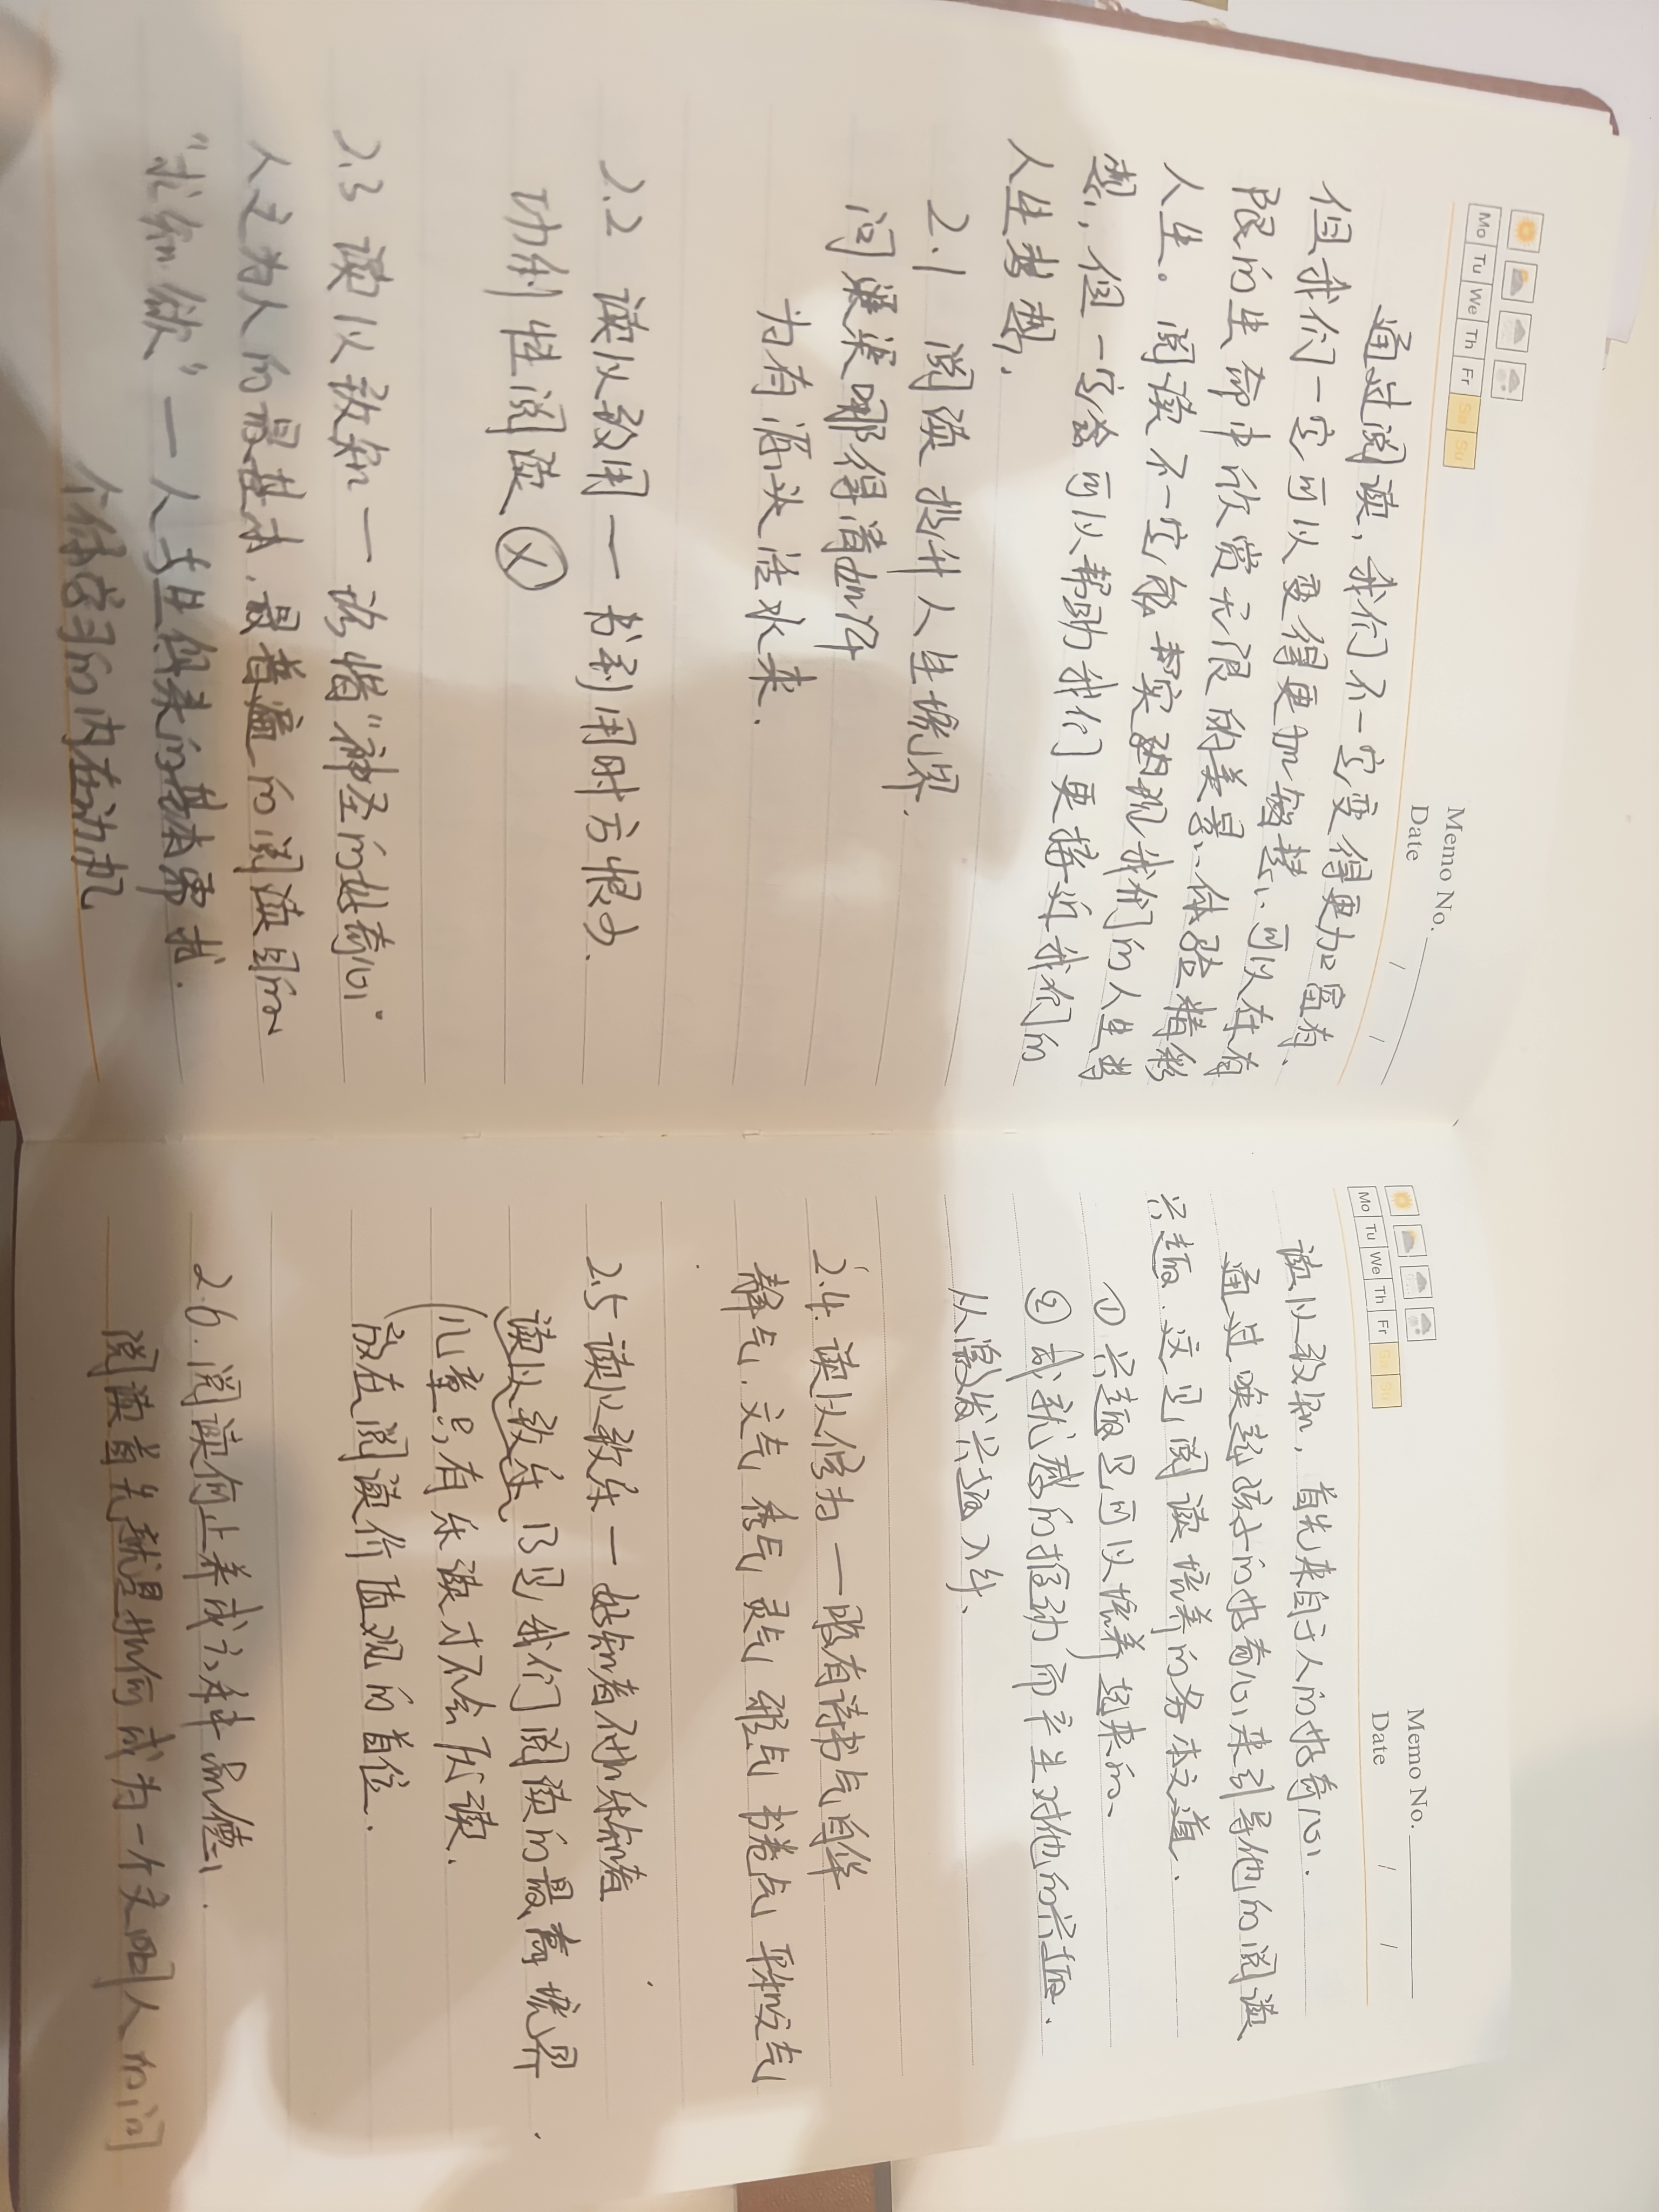 Memo No.
Date / /
Mo Tu We Th Fr Sa Su
通过阅读，我们不一定变得更加富有、
但我们一定可以变得更加智慧、可以在有
限的生命中欣赏无限的美景、体验精彩
人生。阅读不一定能实现我们的人生梦
想，但一定会可以帮助我们更接近我们的
人生梦想，
2.1 阅读提升人生境界.
问渠哪得清如许
为有源头活水来.
2.2 读以致用一 书到用时方恨少.
功利性阅读
2.3 读以致知一 访惜"神圣的好奇心"
人之为人的最基本.最普遍的阅读目的
"求知欲"一人与生俱来的基本需求.
个体学习的内在动机
Memo No.
Date / /
Mo Tu We Th Fr Sa Su
读以致知，首先来自于人的好奇心.
通过唤起孩子的好奇心来引导他的阅读
兴趣.这是阅读培养的务本之道.
① 兴趣是可以培养起来的、
② 成就感的推动而产生对他的兴趣.
从激发兴趣入手、
2.4. 读以修为一 一腹有诗书气自华
静气.文气 秀气 灵气 雅气 书卷气 平和之气
2.5 读以致乐一 好知者不如乐知者
读以致乐乃是我们阅读的最高境界
(儿童只有乐读才不会厌读.
放在阅读价值观的首位.
2.6. 阅读何止养成这种品德.
阅读首先就是如何成为一个文明人的问